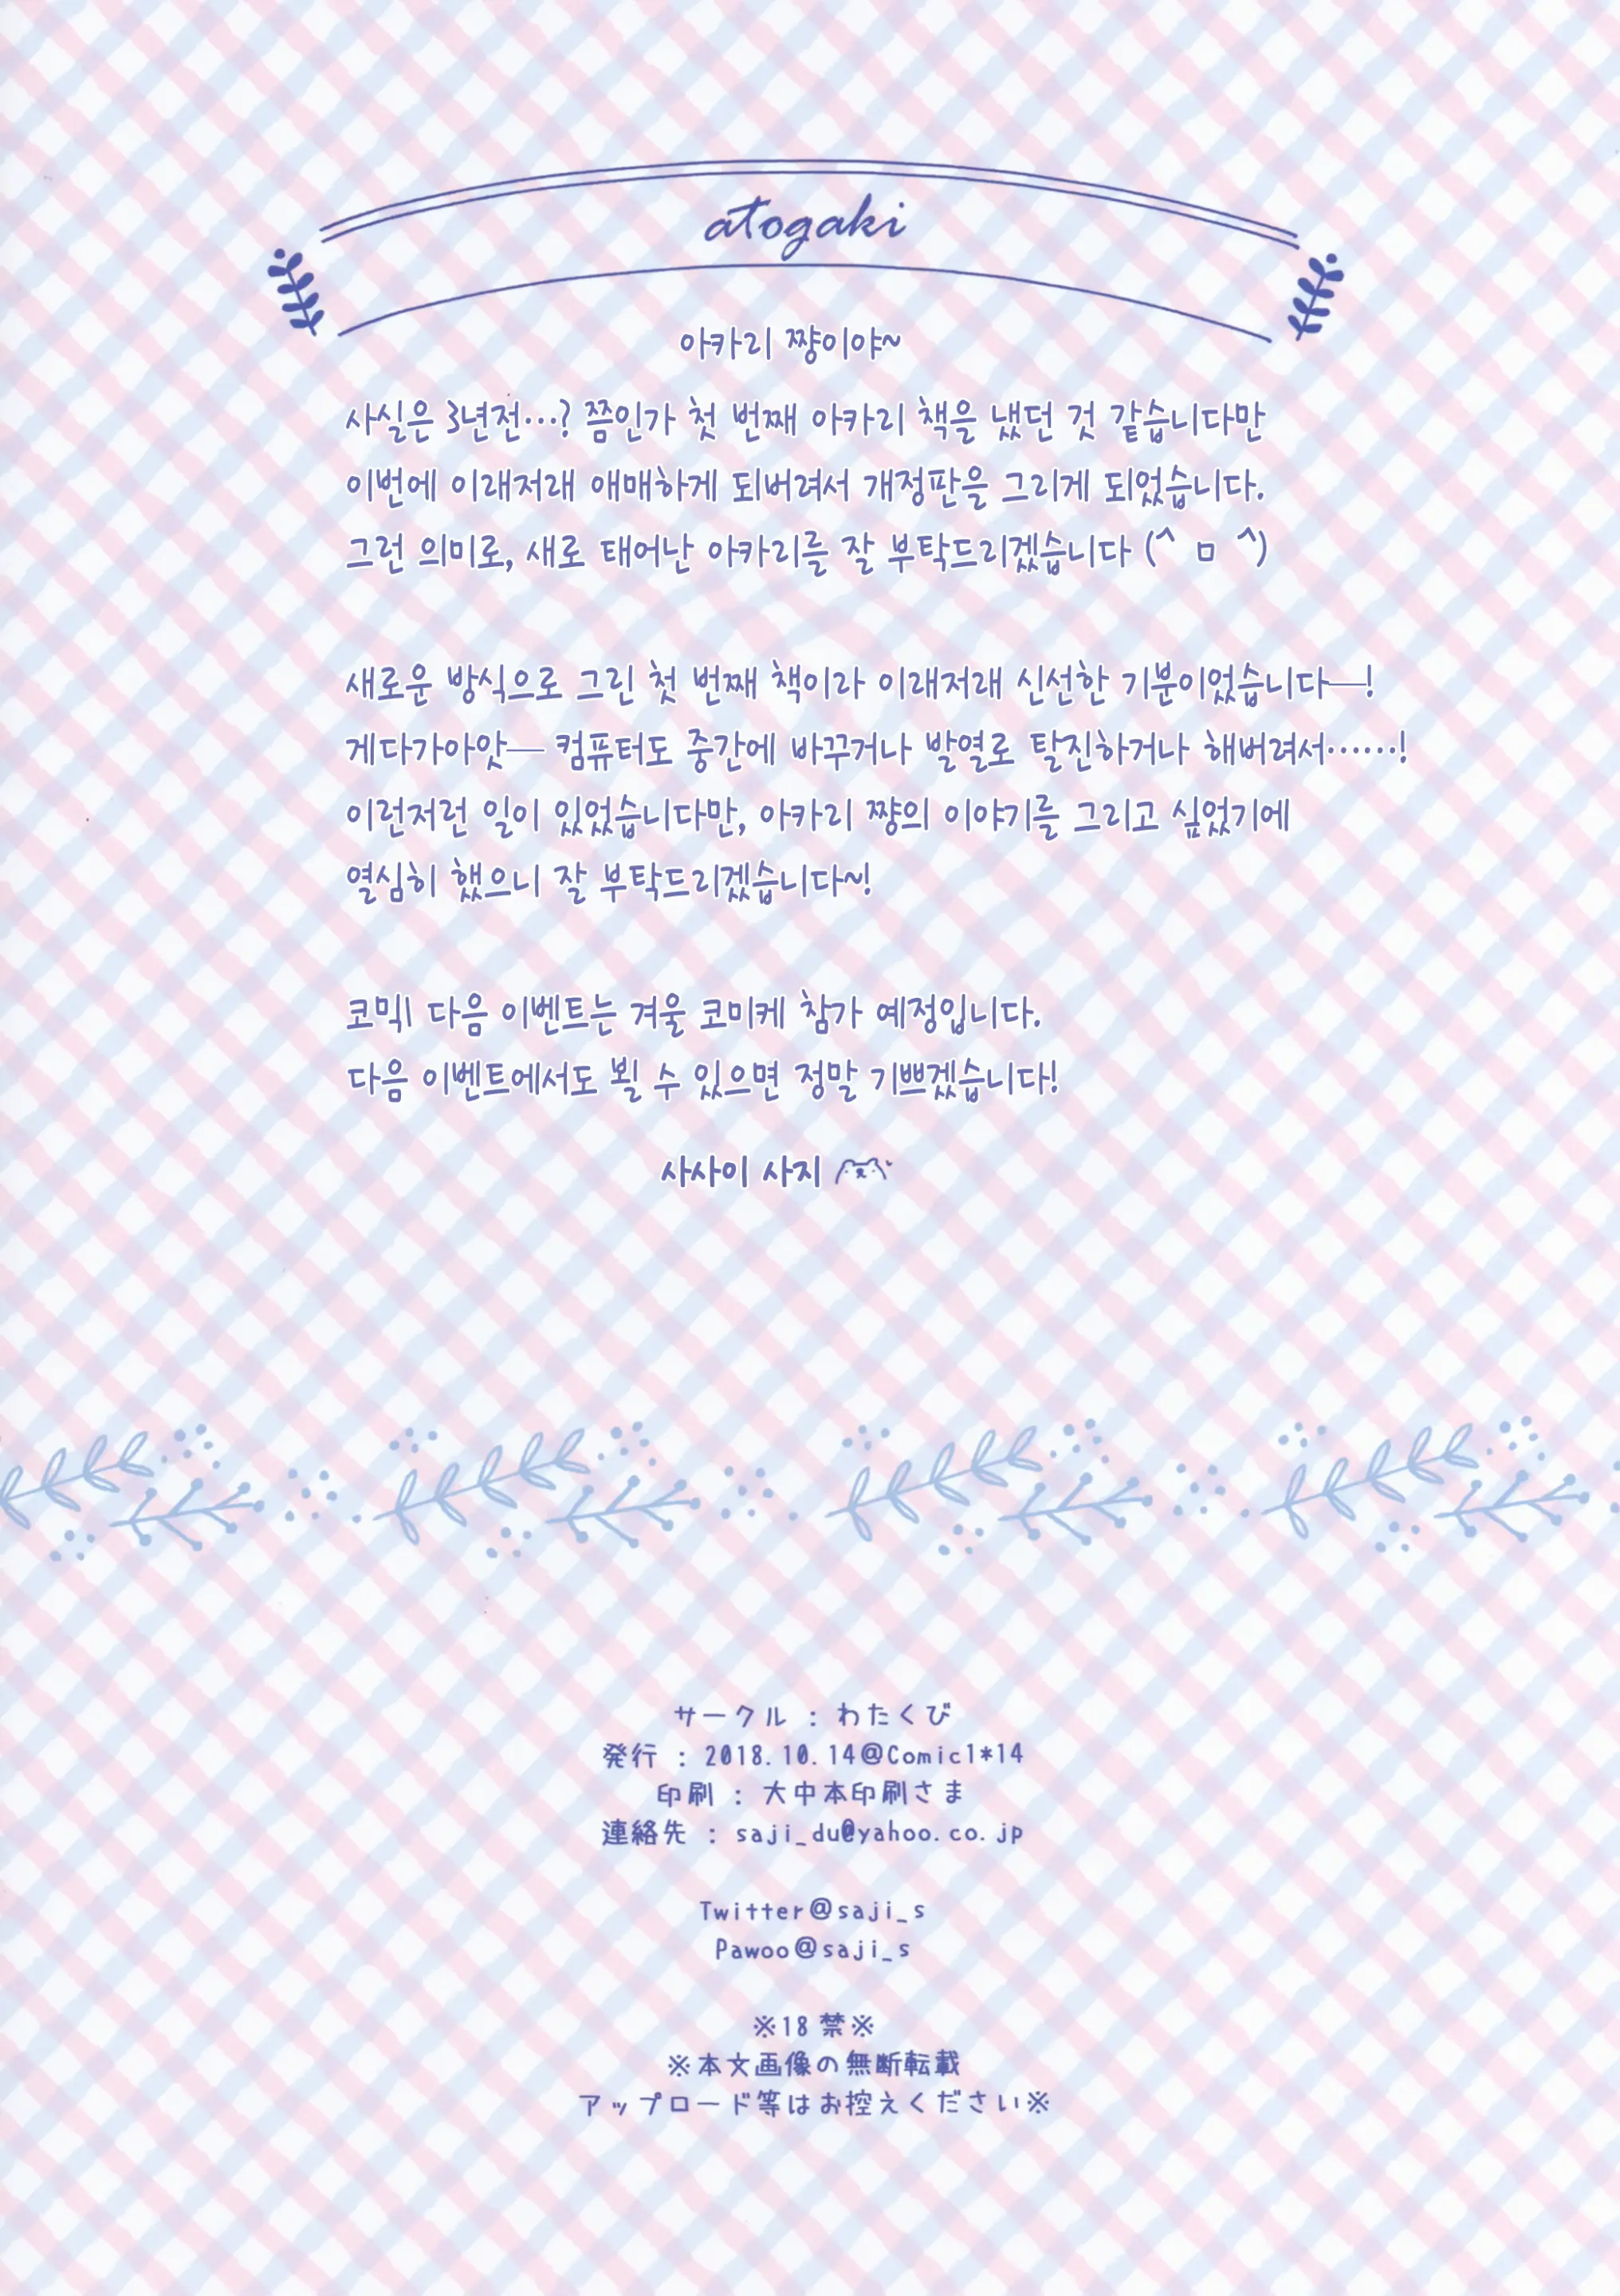 atogaki
아카리 쨩이야~
사실은 3년전…? 쯤인가 첫 번째 아카리 책을 냈던 것 같습니다만
이번에 이래저래 애매하게 되버려서 개정판을 그리게 되었습니다.
그런 의미로, 새로 태어난 아카리를 잘 부탁드리겠습니다 (^ ㅁ ^)
새로운 방식으로 그린 첫 번째 책이라 이래저래 신선한 기분이었습니다—!
게다가아앗— 컴퓨터도 중간에 바꾸거나 발열로 탈진하거나 해버려서……!
이런저런 일이 있었습니다만, 아카리 쨩의 이야기를 그리고 싶었기에
열심히 했으니 잘 부탁드리겠습니다~!
코믹1 다음 이벤트는 겨울 코미케 참가 예정입니다.
다음 이벤트에서도 뵐 수 있으면 정말 기쁘겠습니다!
사사이 사지
サークル : わたくび
発行 : 2018.10.14@Comic1*14
印刷 : 大中本印刷さま
連絡先 : saji_du@yahoo.co.jp
Twitter@saji_s
Pawoo@saji_s
※18禁※
※本文画像の無断転載
アップロード等はお控えください※